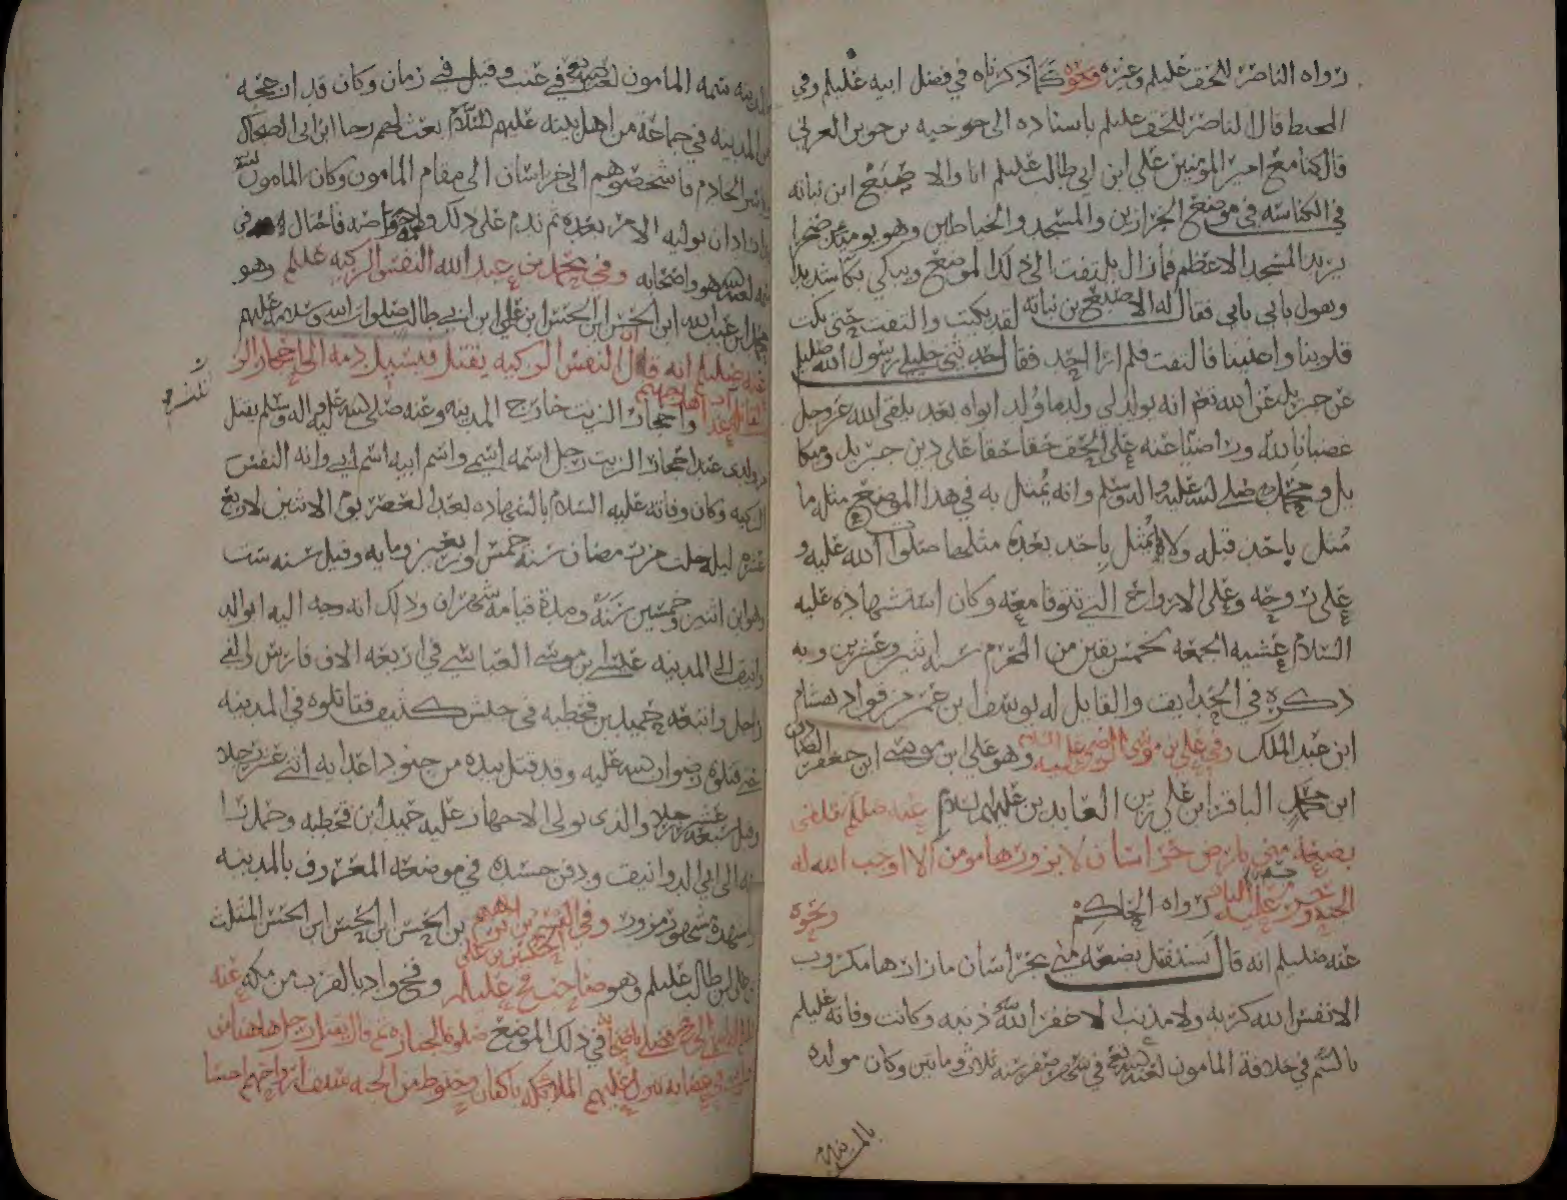 رواه الناصر للحق عليلم وغيره ونحوه كما ذكرناه في فضل ابيه عليلم وفي
المحيط قال الناصر للحق عليلم باسناده الى جوخيه بن جوين العرني
قال كنا مع امير المؤمنين علي ابن ابي طالب عليلم انا والاصبغ ابن نباته
في الكناسه في موضع الجزارين والمسجد والخياطين وهو يوميذ صحرا
يريد المسجد الاعظم فما زال يلتفت الى ذلك الموضع ويبكي بكا شديدا
ويقول بابي بابي فقال له الاصبغ بن نباته لقد بكيت والتفت حتى بكت
قلوبنا واعيننا فالتفت فلم ار احد فقال حدثني خليلي رسول الله صليلم
عن جبريل عن الله تعلى انه يولد لي ولد ما ولد ابواه بعد يلقى الله عز وجل
غضبانا لله وراضيا عنه على الحق حقا حقا على دين جبريل وميكا
يل ومحمد صلى الله عليه واله وسلم وانه يمثل به في هذا الموضع مثله ما
مثل باحد قبله ولا يمثل باحد بعده مثلها صلوات الله عليه و
على روحه وعلى الارواح التي تتوفا معه وكان استشهاده عليه
السلام عشيه الجمعه لخمس بقين من المحرم سنه اثنين وعشرين ومايه
ذكره في الحدايق والقاتل له يوسف ابن عمر من قواد هشام
ابن عبد الملك وفي علي بن موسى الرضى عليه السلام وهو علي ابن موسى ابن جعفر الصادق
ابن محمد الباقر ابن علي زين العابدين عليهم السلام عنه صليلم ستلقى
بضعة مني بارض خراسان لا يزورها مومن الا اوجب الله له
الجنه وحرم جسده على النار رواه الحاكم ونحوه
عنه صليلم انه قال ستقتل بضعة مني بخراسان ما زارها مكروب
الا نفس الله كربه ولا مذنب الا غفر الله ذنبه وكانت وفاته عليلم
بالسم في خلافة المامون لعنه الله في شهر صفر سنه ثلاث ومايتين وكان مولده
بالمدينه
بالمدينه سمه المامون لعنه الله في عنب وقيل في رمان وكان قد ازعجه
من المدينه في جماعة من اهل بيته عليهم السلام بعث لهم رجا ابن ابي الضحاك
وياسر الخادم فاشخصوهم الى خراسان الى مقام المامون وكان المامون لعنه الله
اراد ان يوليه الامر بعده ثم ندم على ذلك فاحتال في
سمه لعنه الله هو واصحابه وفي محمد بن عبد الله النفس الزكيه عليلم وهو
محمد ابن عبد الله ابن الحسن ابن الحسن ابن علي ابن ابي طالب صلوات الله وسلامه عليهم
عنه صليلم انه قال النفس الزكيه يقتل فيسيل دمه الى احجار الزيت
واحجار الزيت خارج المدينه وعنه صلى الله عليه واله وسلم يقتل
من ولدي عند احجار الزيت رجل اسمه اسمي واسم ابيه اسم ابي وانه النفس
الزكيه وكان وفاته عليه السلام بالشهاده بعد العصر يوم الاثنين لاربع
عشره ليله خلت من رمضان سنه خمس واربعين ومايه وقيل سنه ست
وهو ابن اثنين وخمسين سنة ومدة قيامه شهران وذلك انه وجه اليه ابو الد
وانيق الى المدينه عيسى ابن موسى العباسي في اربعه الاف فارس والفي
راجل واتبعه حميد بن قحطبه في جيش كثيف فقاتلوه في المدينه
حتى قتلوه رضوان الله عليه وقد قتل بيده من جنود اعدايه اثني عشر رجلا
وقيل سبعة عشر رجلا والذي تولى الاجهاز عليه حميد ابن قحطبه وحمل را
سه الى ابي الدوانيق ودفن جسده في موضعه المعروف بالمدينه
ومشهده مشهور مزور وفي بن الحسن ابن الحسن ابن الحسن المثلث
بن علي ابن ابي طالب عليلم وهو صاحب فخ عليلم وفخ واد بالقرب من مكه عنه
في ذلك الموضع صلوة الجنازه ثم قال يقتل رجل هاهنا من
تنزل عليهم الملايكه باكفان وحنوط من الجنه تسبق ارواحهم اجسا